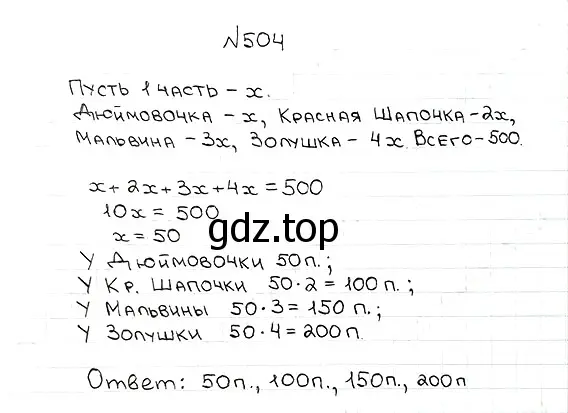 №504
Пусть 1 часть – х.
Дюймовочка – х, Красная Шапочка – 2х,
Мальвина – 3х, Золушка – 4х. Всего – 500.
х + 2х + 3х + 4х = 500
10х = 500
х = 50
gdz.top
У Дюймовочки 50 п.;
У Кр. Шапочки 50 · 2 = 100 п.;
У Мальвины 50 · 3 = 150 п.;
У Золушки 50 · 4 = 200 п.
Ответ: 50п., 100п., 150п., 200п